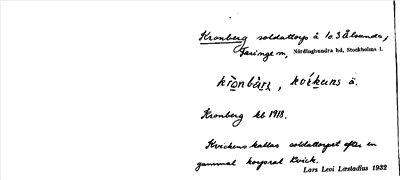 Kronberg soldattorp å lo. 3 Älsunda,
Faringe sn, Närdinghundra hd, Stockholms l.
krònbàrj, kvékuns ä.
Kronberg kb 1918.
Kvickens kallas soldattorpet efter en
gammal korpral Kvick.
Lars Levi Læstadius 1932